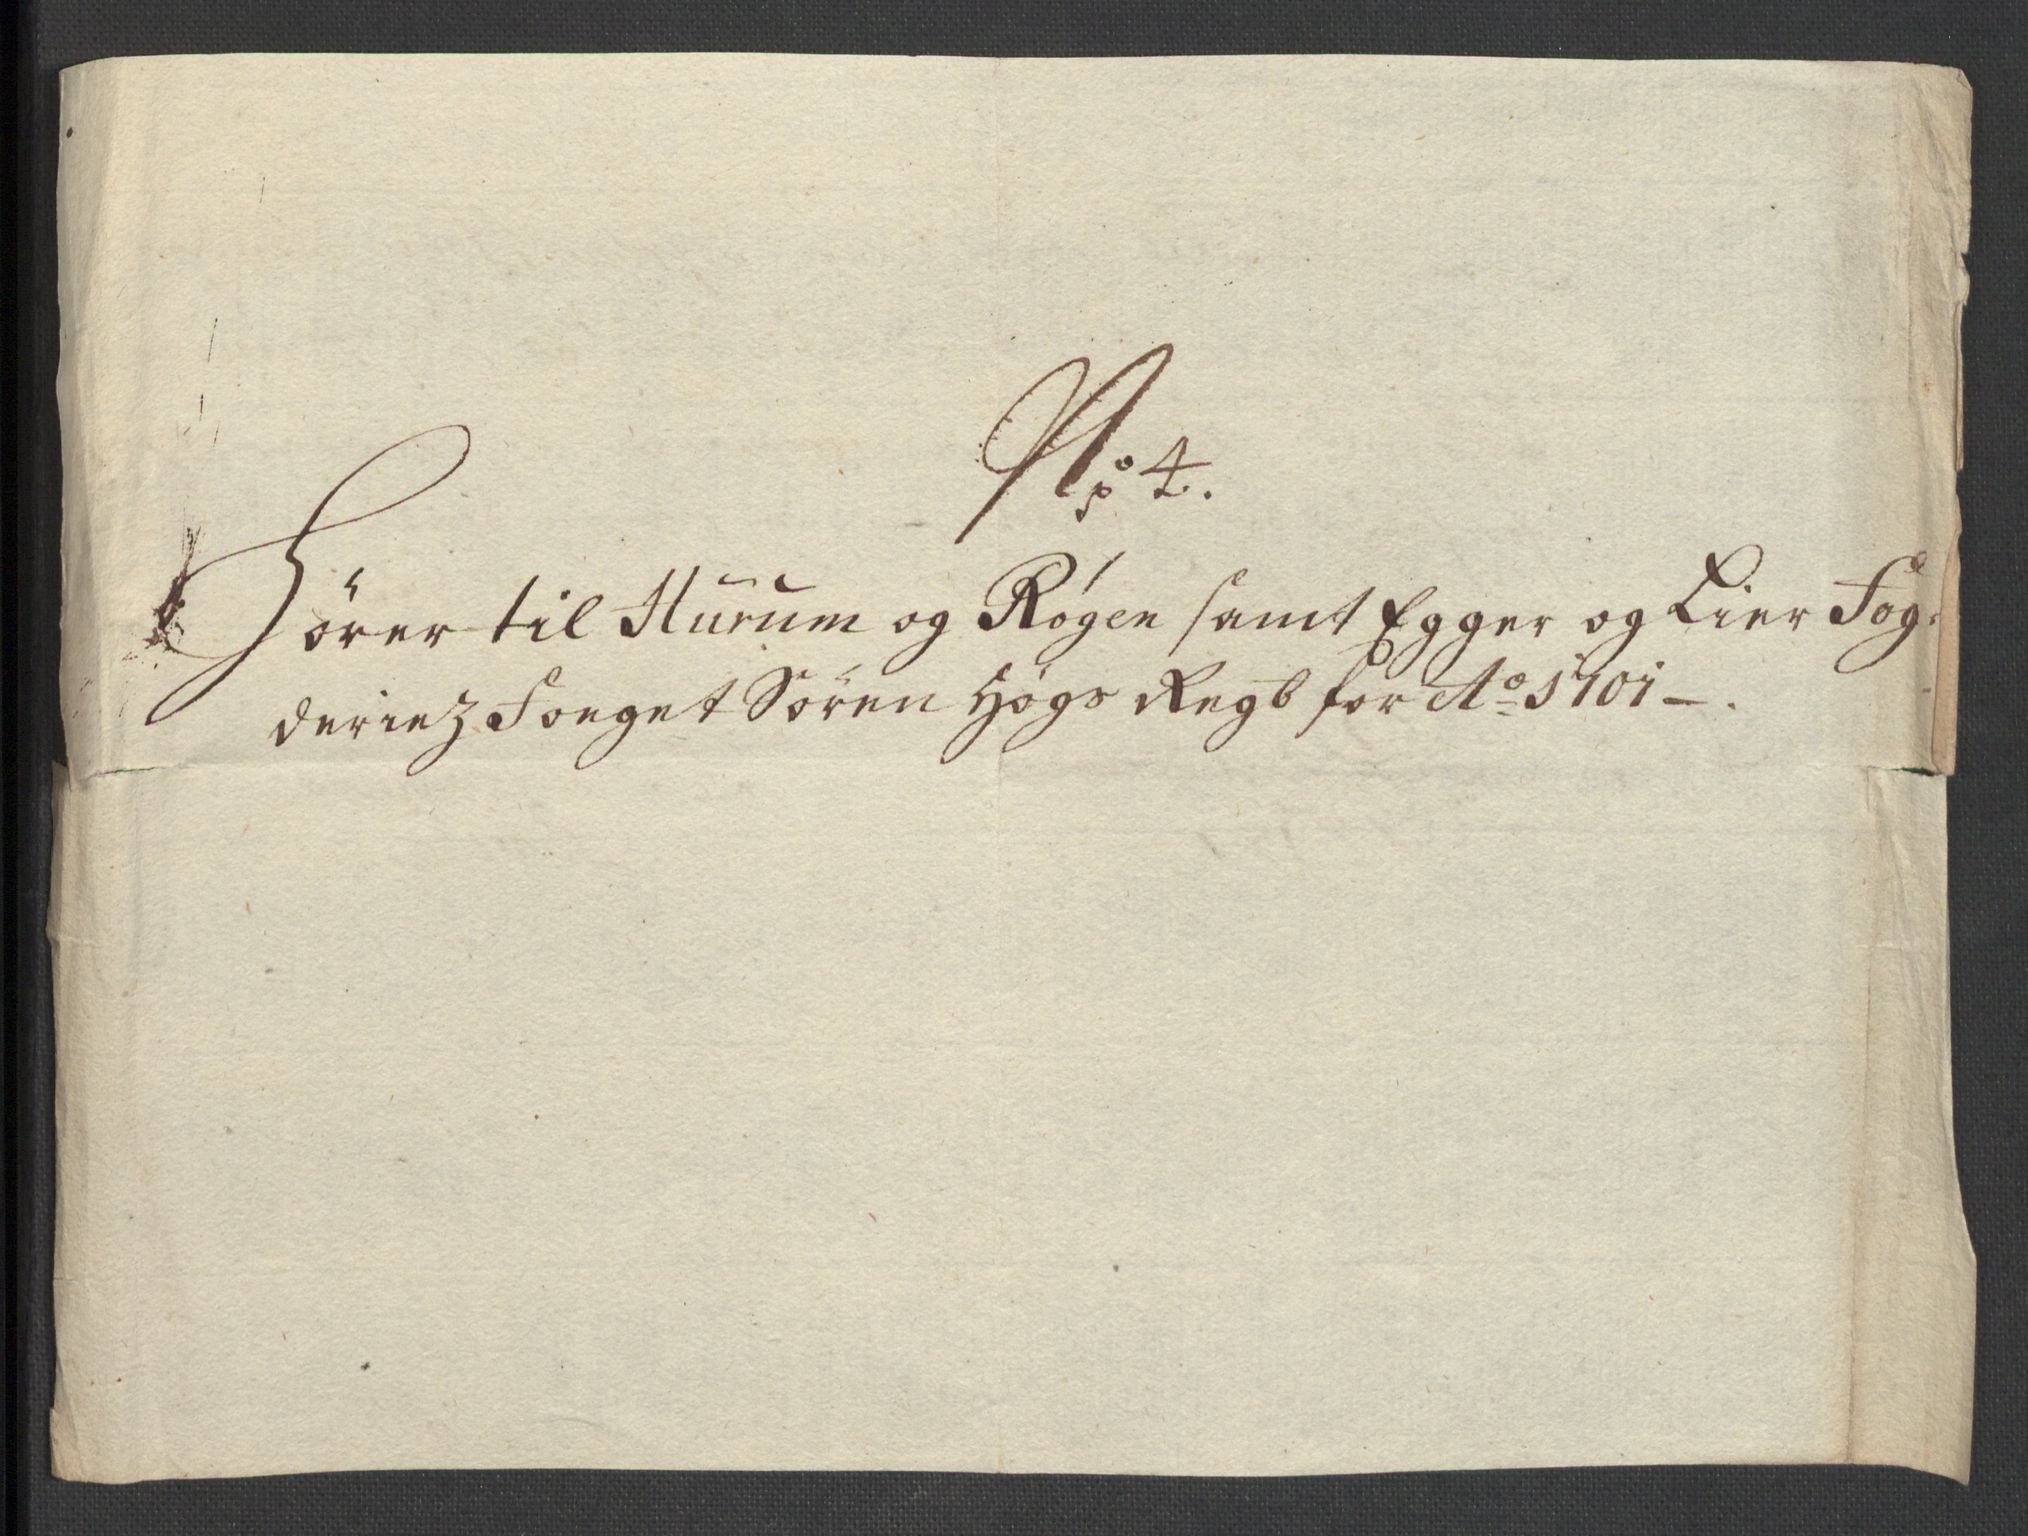 No 4.
Hörer til Hurum og Røgen samt Egger og Lier Fog-
deriez Foeget Sören Högs Regb for Ao 1701 -.